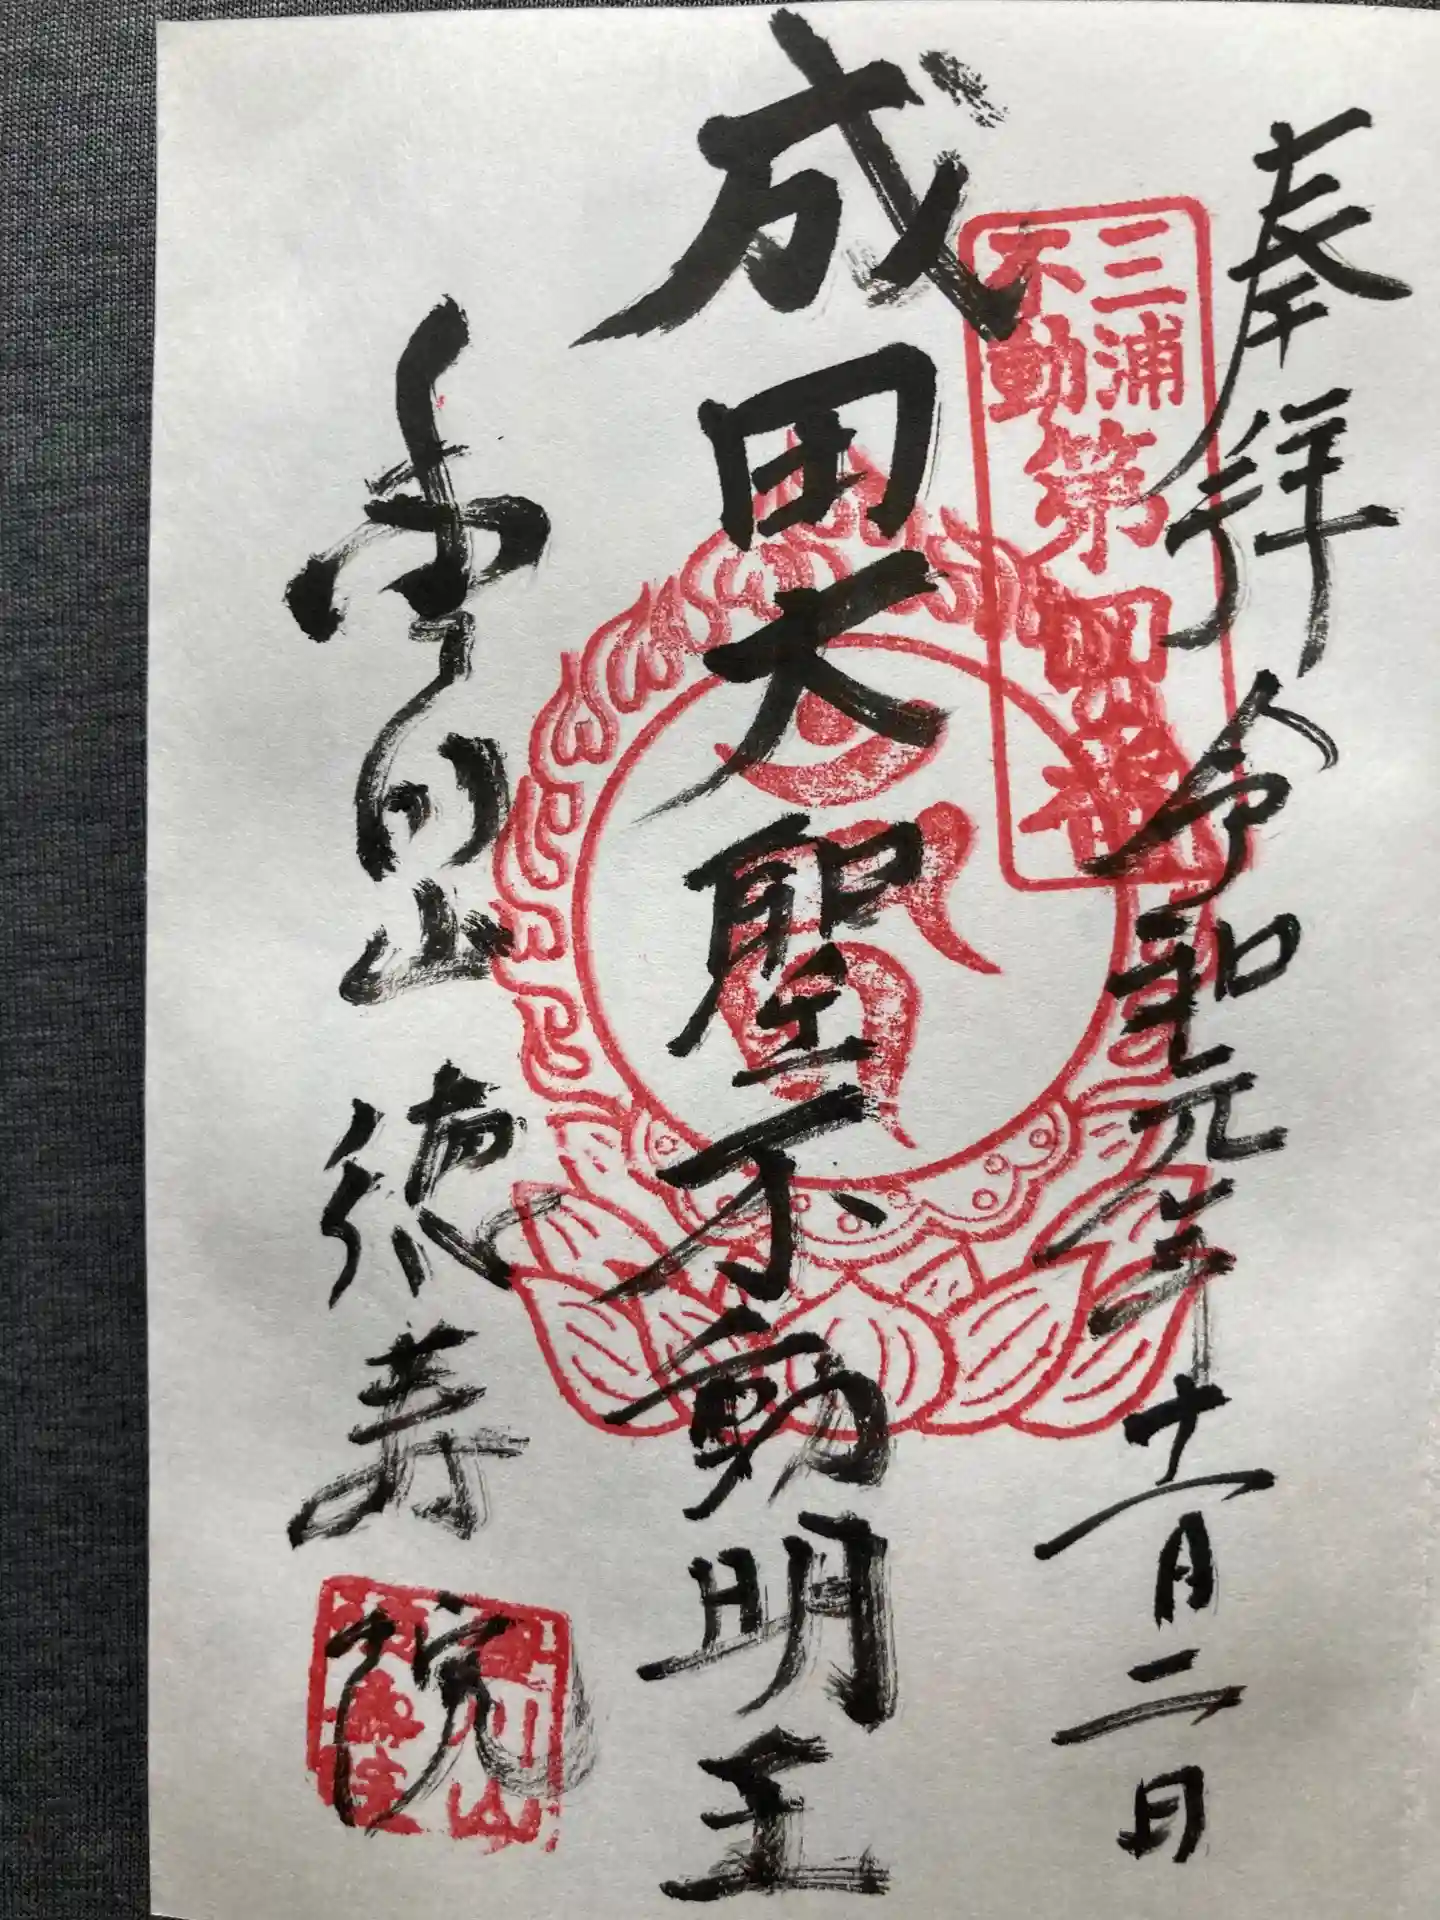 奉拝 令和元年十一月二日
三浦
不動
第四番
成田大聖不動明王
豊川山 徳寿院